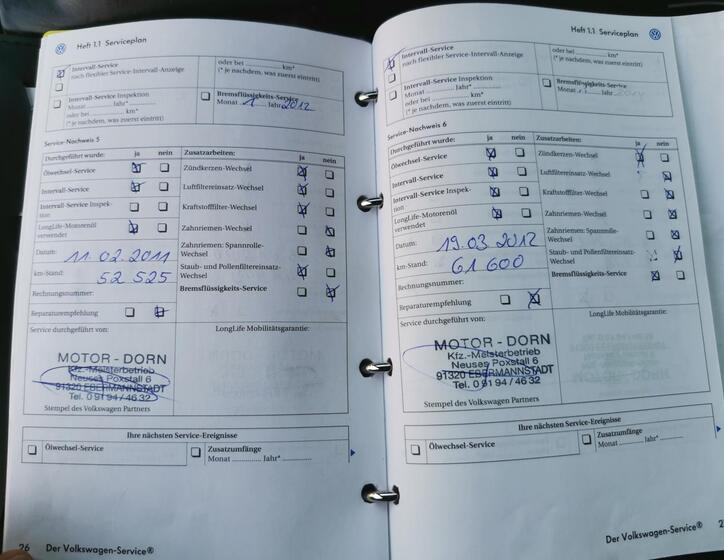 Heft 1.1 Serviceplan
Intervall-Service
nach flexibler Service-Intervall-Anzeige
oder bei .............. km*
(* je nachdem, was zuerst eintritt)
Intervall-Service Inspektion
Monat .............. Jahr*..............
oder bei .............. km*
(* je nachdem, was zuerst eintritt)
Bremsflüssigkeits-Service
Monat 1 Jahr 2012
Service-Nachweis 5
Durchgeführt wurde: ja nein
Zusatzarbeiten: ja nein
Ölwechsel-Service
Intervall-Service
Intervall-Service Inspek-
tion
LongLife-Motorenöl
verwendet
Datum: 11.02.2011
km-Stand: 52 525
Rechnungsnummer:
Reparaturempfehlung
Zündkerzen-Wechsel
Luftfiltereinsatz-Wechsel
Kraftstofffilter-Wechsel
Zahnriemen-Wechsel
Zahnriemen: Spannrolle-
Wechsel
Staub- und Pollenfiltereinsatz-
Wechsel
Bremsflüssigkeits-Service
Service durchgeführt von:
LongLife Mobilitätsgarantie:
MOTOR - DORN
Kfz.-Meisterbetrieb
Neuses Poxstall 6
91320 EBERMANNSTADT
Tel. 0 91 94 / 46 32
Stempel des Volkswagen Partners
Ihre nächsten Service-Ereignisse
Ölwechsel-Service
Zusatzumfänge
Monat .............. Jahr* ..............
26 Der Volkswagen-Service®
Heft 1.1 Serviceplan
Intervall-Service
nach flexibler Service-Intervall-Anzeige
oder bei .............. km*
(* je nachdem, was zuerst eintritt)
Intervall-Service Inspektion
Monat .............. Jahr*..............
oder bei .............. km*
(* je nachdem, was zuerst eintritt)
Bremsflüssigkeits-Service
Monat
Service-Nachweis 6
Durchgeführt wurde: ja nein
Zusatzarbeiten: ja nein
Ölwechsel-Service
Intervall-Service
Intervall-Service Inspek-
tion
LongLife-Motorenöl
verwendet
Datum: 19.03 2012
km-Stand: 61 600
Rechnungsnummer:
Reparaturempfehlung
Zündkerzen-Wechsel
Luftfiltereinsatz-Wechsel
Kraftstofffilter-Wechsel
Zahnriemen-Wechsel
Zahnriemen: Spannrolle-
Wechsel
Staub- und Pollenfiltereinsatz-
Wechsel
Bremsflüssigkeits-Service
Service durchgeführt von:
LongLife Mobilitätsgarantie:
MOTOR - DORN
Kfz.-Meisterbetrieb
Neuses Poxstall 6
91320 EBERMANNSTADT
Tel. 0 91 94 / 46 32
Stempel des Volkswagen Partners
Ihre nächsten Service-Ereignisse
Ölwechsel-Service
Zusatzumfänge
Monat .............. Jahr* ..............
Der Volkswagen-Service®